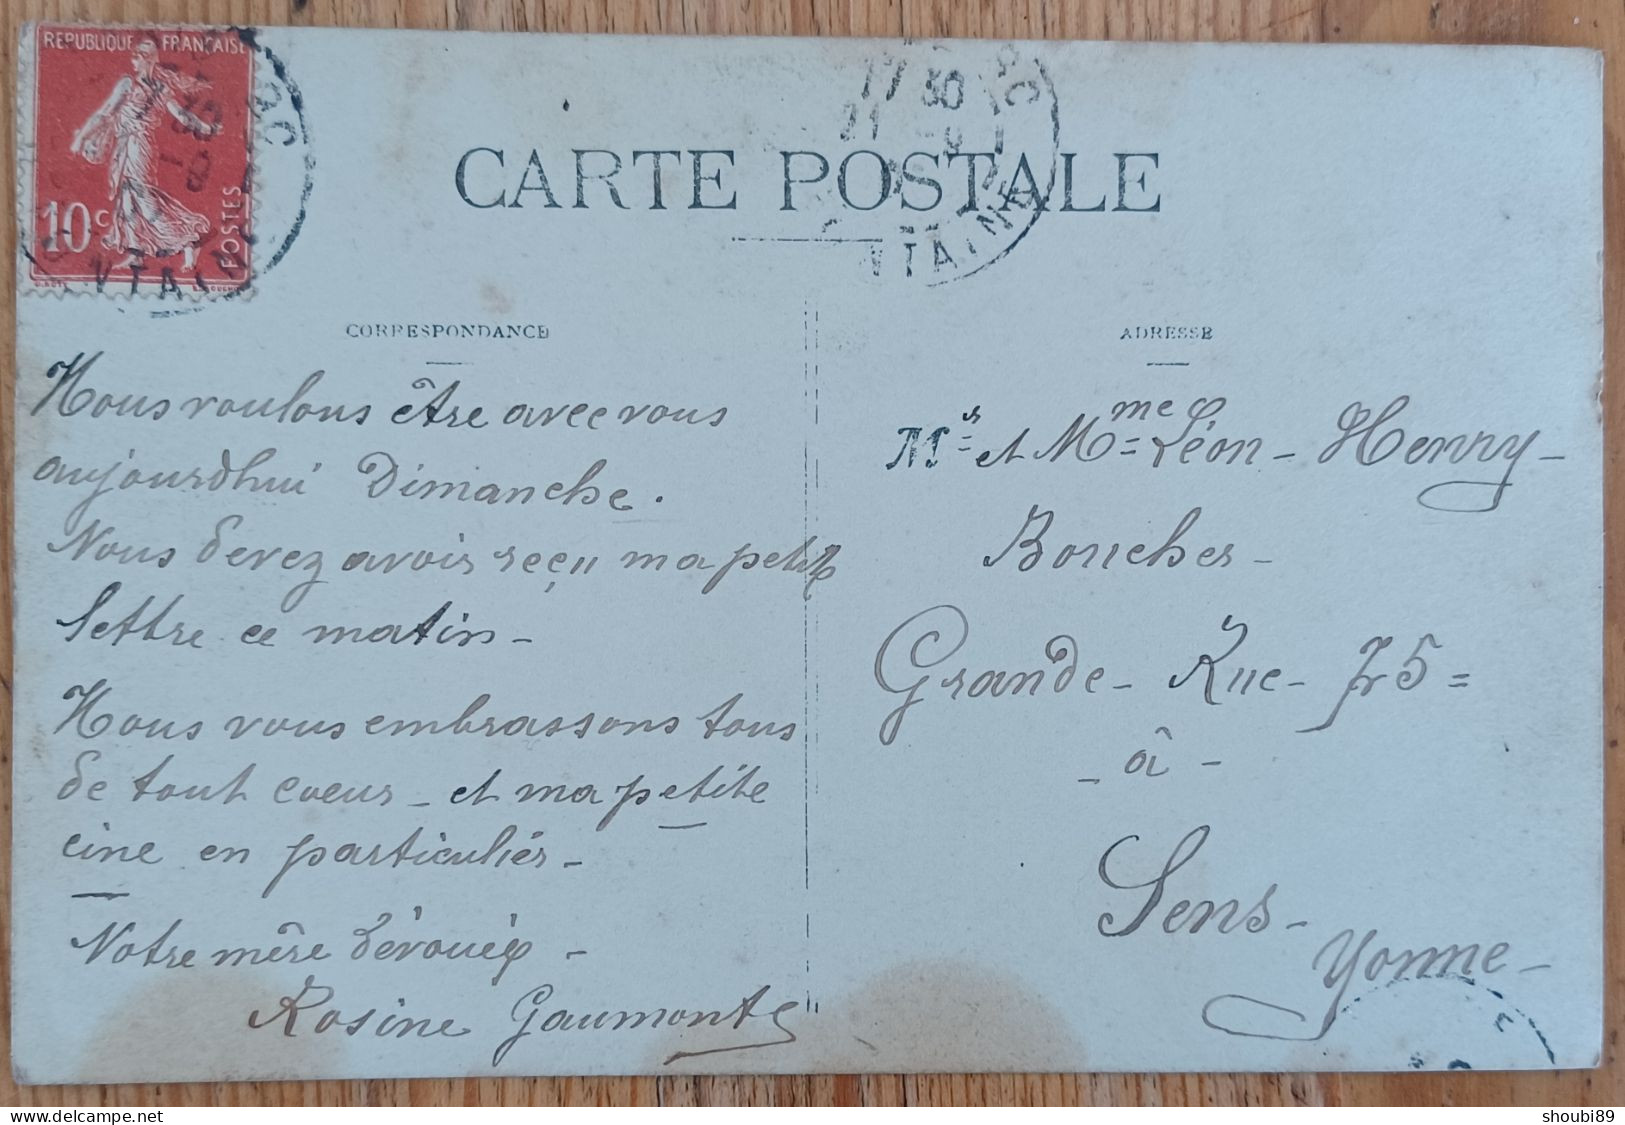 REPUBLIQUE FRANÇAISE
10c
POSTES
17 30
21
CARTE POSTALE
CORRESPONDANCE
Nous voulons être avec vous
aujourdhui Dimanche.
Vous devez avoir reçu ma petite
lettre ce matin -
Nous vous embrassons tous
de tout coeur - et ma petite
cine en particulier -
Votre mère dévouée -
Rosine Gaumont
ADRESSE
Mr et Mme Léon - Henry -
Boucher -
Grande - Rue - 75 =
- à -
Sens -
Yonne -
shoubi89